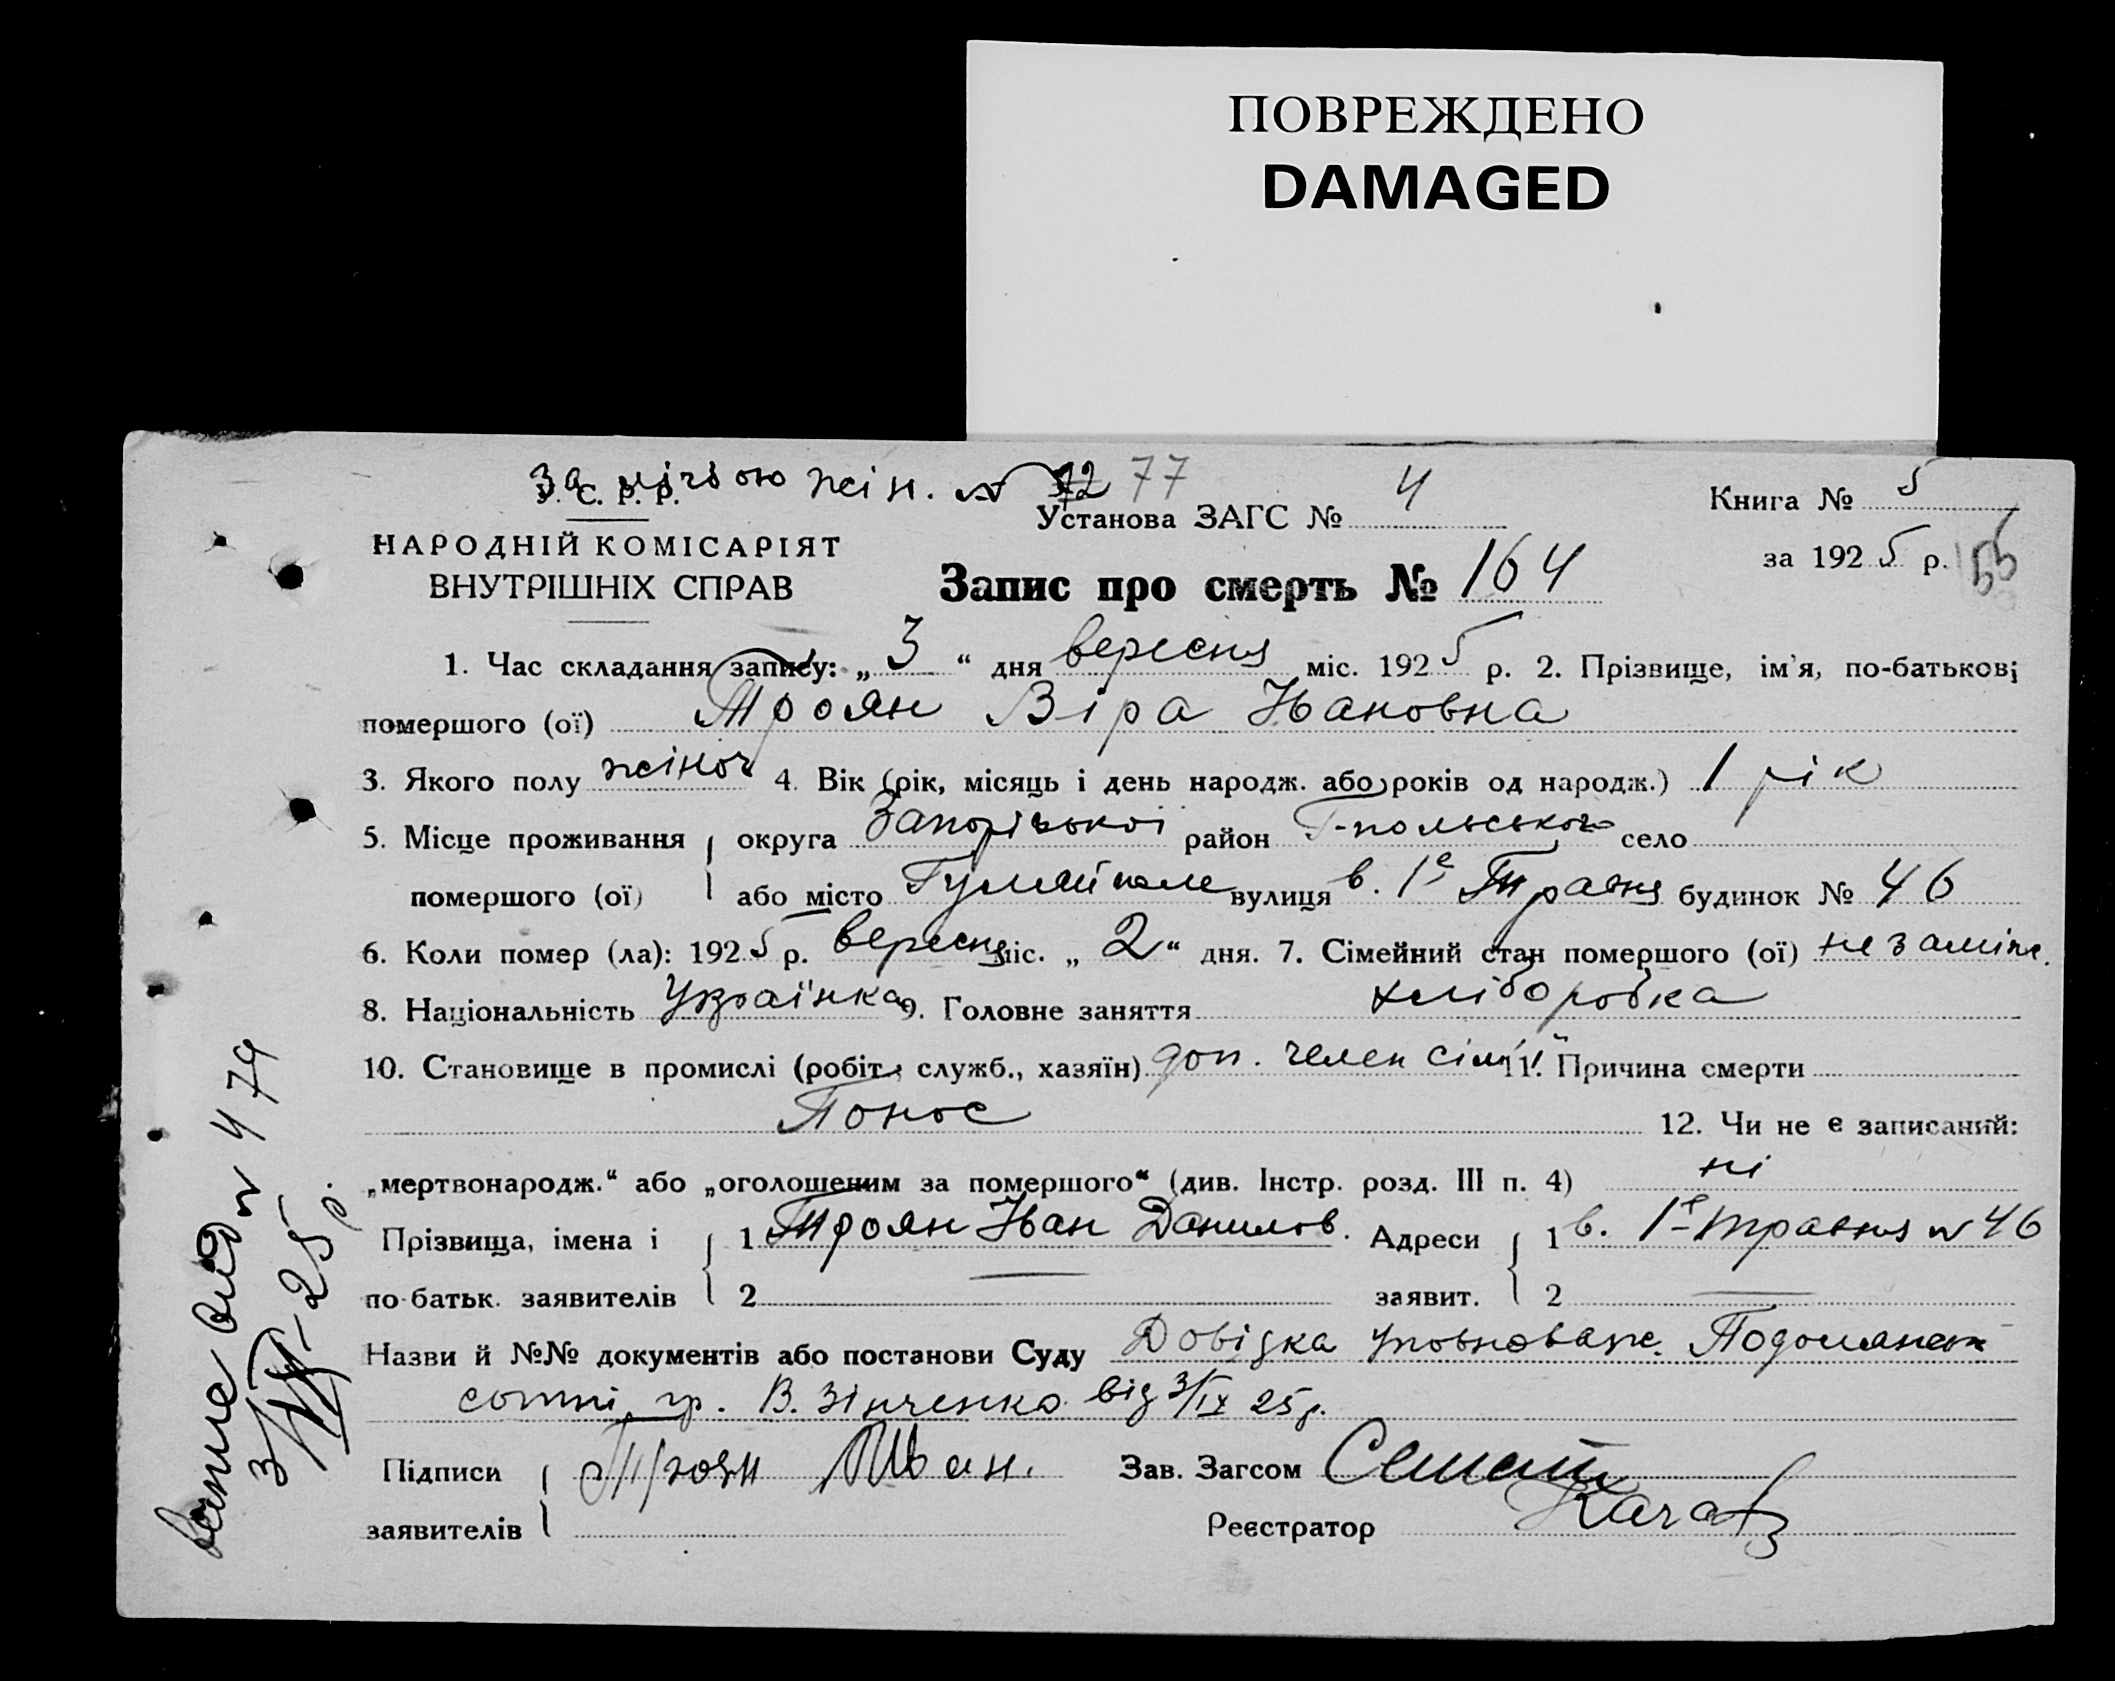 ПОВРЕЖДЕНО
DAMAGED
За лічбою жін. № 72 77
У. С. Р. Р.
Установа ЗАГС № 4
Книга № 5
НАРОДНІЙ КОМІСАРІЯТ
ВНУТРІШНІХ СПРАВ
Запис про смерть № 164
за 1925 р.
1. Час складання запису: „3“ дня вересня міс. 1925 р. 2. Прізвище, ім'я, по-батькові
помершого (ої) Троян Віра Івановна
3. Якого полу жіноч 4. Вік (рік, місяць і день народж. або років од народж.) 1 рік
5. Місце проживання округа Запорізької район Г-польського село
помершого (ої) або місто Гуляйполе вулиця в. 1е Травня будинок № 46
6. Коли помер (ла): 1925 р. вересня міс. „2“ дня. 7. Сімейний стан помершого (ої) незаміж.
8. Національність Українка 9. Головне заняття хліборобка
10. Становище в промислі (робіт., служб., хазяїн) доп. член сім'ї 11. Причина смерти
Понос 12. Чи не є записаний:
„мертвонародж.“ або „оголошеним за помершого“ (див. Інстр. розд. III п. 4) ні
Прізвища, імена і 1 Троян Іван Данилов. Адреси 1 в. 1е Травня № 46
по-батьк. заявителів 2 — заявит. 2 —
Назви й №№ документів або постанови Суду Довідка уповноваж.
сотні, гр. В. Зінченко від 3/IX 25 р.
Підписи Троян Иван. Зав. Загсом
заявителів Реєстратор
№ 479
3/IX-25 р.